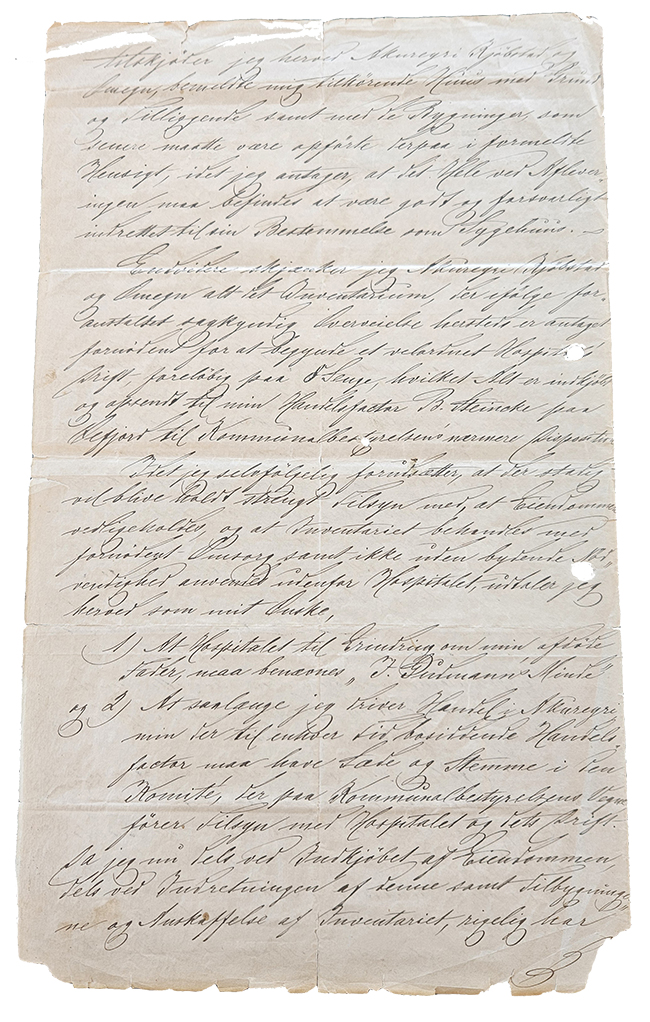 tilskjöder jeg herved Akureyri Kjöbstad og
Omegn, bemeldte mig tilhörende Huus med Grund
og Tilliggende samt med de Bygninger, som
senere maatte være opförte derpaa i formeldte
Hensigt, idet jeg antager, at det Hele ved Aflever-
ingen maa befindes at være godt og forsvarligt
indrettet til sin Bestemmelse som Sygehuus. –
Endvidere skjænker jeg Akureyri Kjöbstad
og Omegn alt det Inventarium, der ifölge for-
anstaltet sagkyndig Overveielse hersteds er antaget
fornödent for at begynde et velordnet Hospitals
Drift, forelöbig paa 8 Senge, hvilket Alt er indkjöbt
og afsendt til min Handelsfactor B. Steincke paa
Oefjord til Kommunalbestyrelsens nærmere Disposition.
Idet jeg selvfölgelig forudsætter, at der stedse
vil blive holdt strengt Tilsyn med, at Eiendommen
vedligeholdes, og at Inventariet behandles med
fornödent Omsorg samt ikke uden bydende Nöd„
vendighed anvendes udenfor Hospitalet, udtaler jeg
herved som mit Önske,
1) At Hospitalet til Erindring om min afdöde
Fader, maa benævnes „ J. Gudmann's Minde"
og 2) At saalænge jeg driver Handel i Akureyri
min der til enhver Tid bosiddende Handels„
factor maa have Sæde og Stemme i den
Komité, der paa Kommunalbestyrelsens Vegne
förer Tilsyn med Hospitalet og dets Drift.
Da jeg nu dels ved Indkjöbet af Eiendommen
dels ved Indretningen af denne samt Tilbygninger„
ne og Anskaffelse af Inventariet, rigelig har